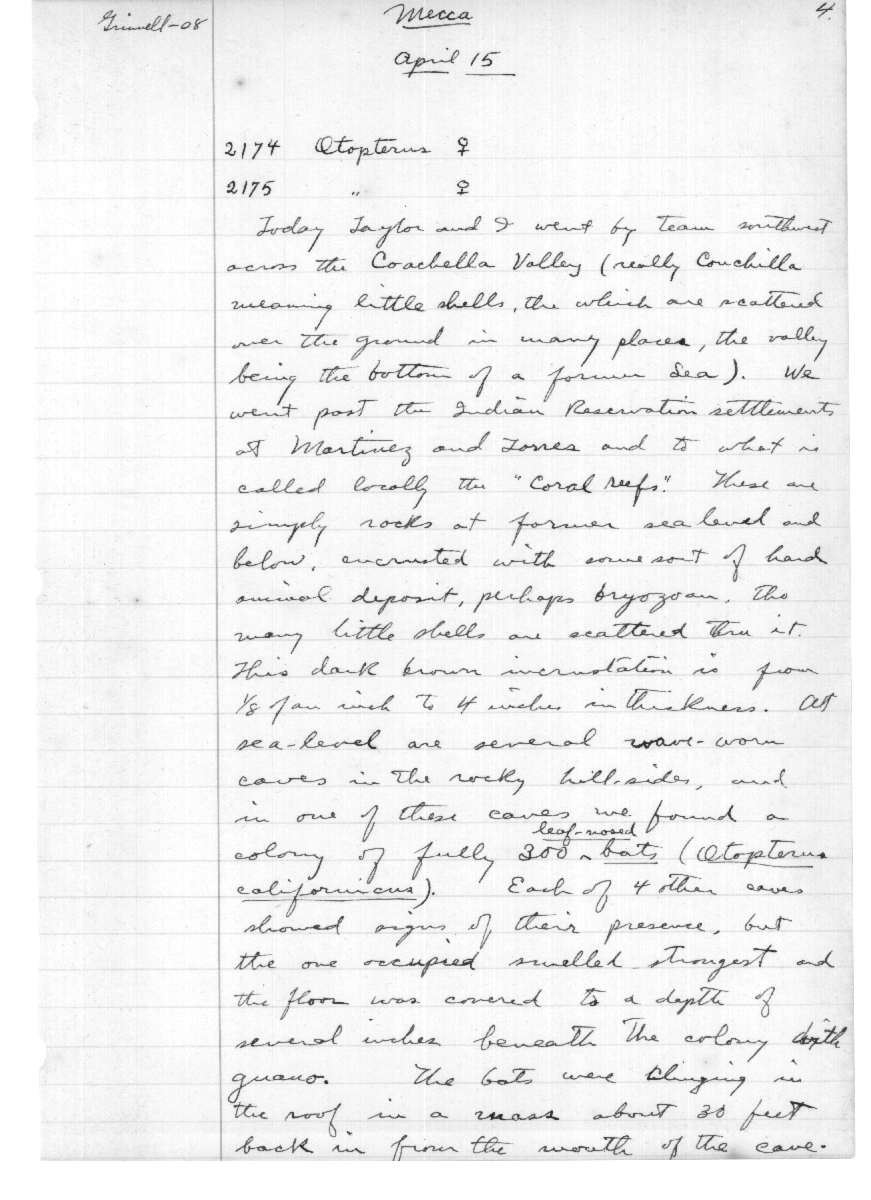 Grinnell-08
Mecca
4.
April 15
2174 Otopterus ♀
2175 " ♀
Today Taylor and I went by team southwest
across the Coachella Valley (really Conchilla
meaning little shells, the which are scattered
over the ground in many places, the valley
being the bottom of a former Sea). We
went past the Indian Reservation settlements
at Martinez and Torres and to what is
called locally the "Coral reefs". These are
simply rocks at former sea level and
below, encrusted with some sort of hard
animal deposit, perhaps bryozoan, tho
many little shells are scattered thru it.
This dark brown incrustation is from
1/8 of an inch to 4 inches in thickness. At
sea-level are several wave-worn
caves in the rocky hill-sides, and
in one of these caves we found a
colony of fully 300 leaf-nosed bats (Otopterus
californicus). Each of 4 other caves
showed signs of their presence, but
the one occupied smelled strongest and
the floor was covered to a depth of
several inches beneath the colony with
guano. The bats were clinging in
the roof in a mass about 30 feet
back in from the mouth of the cave.